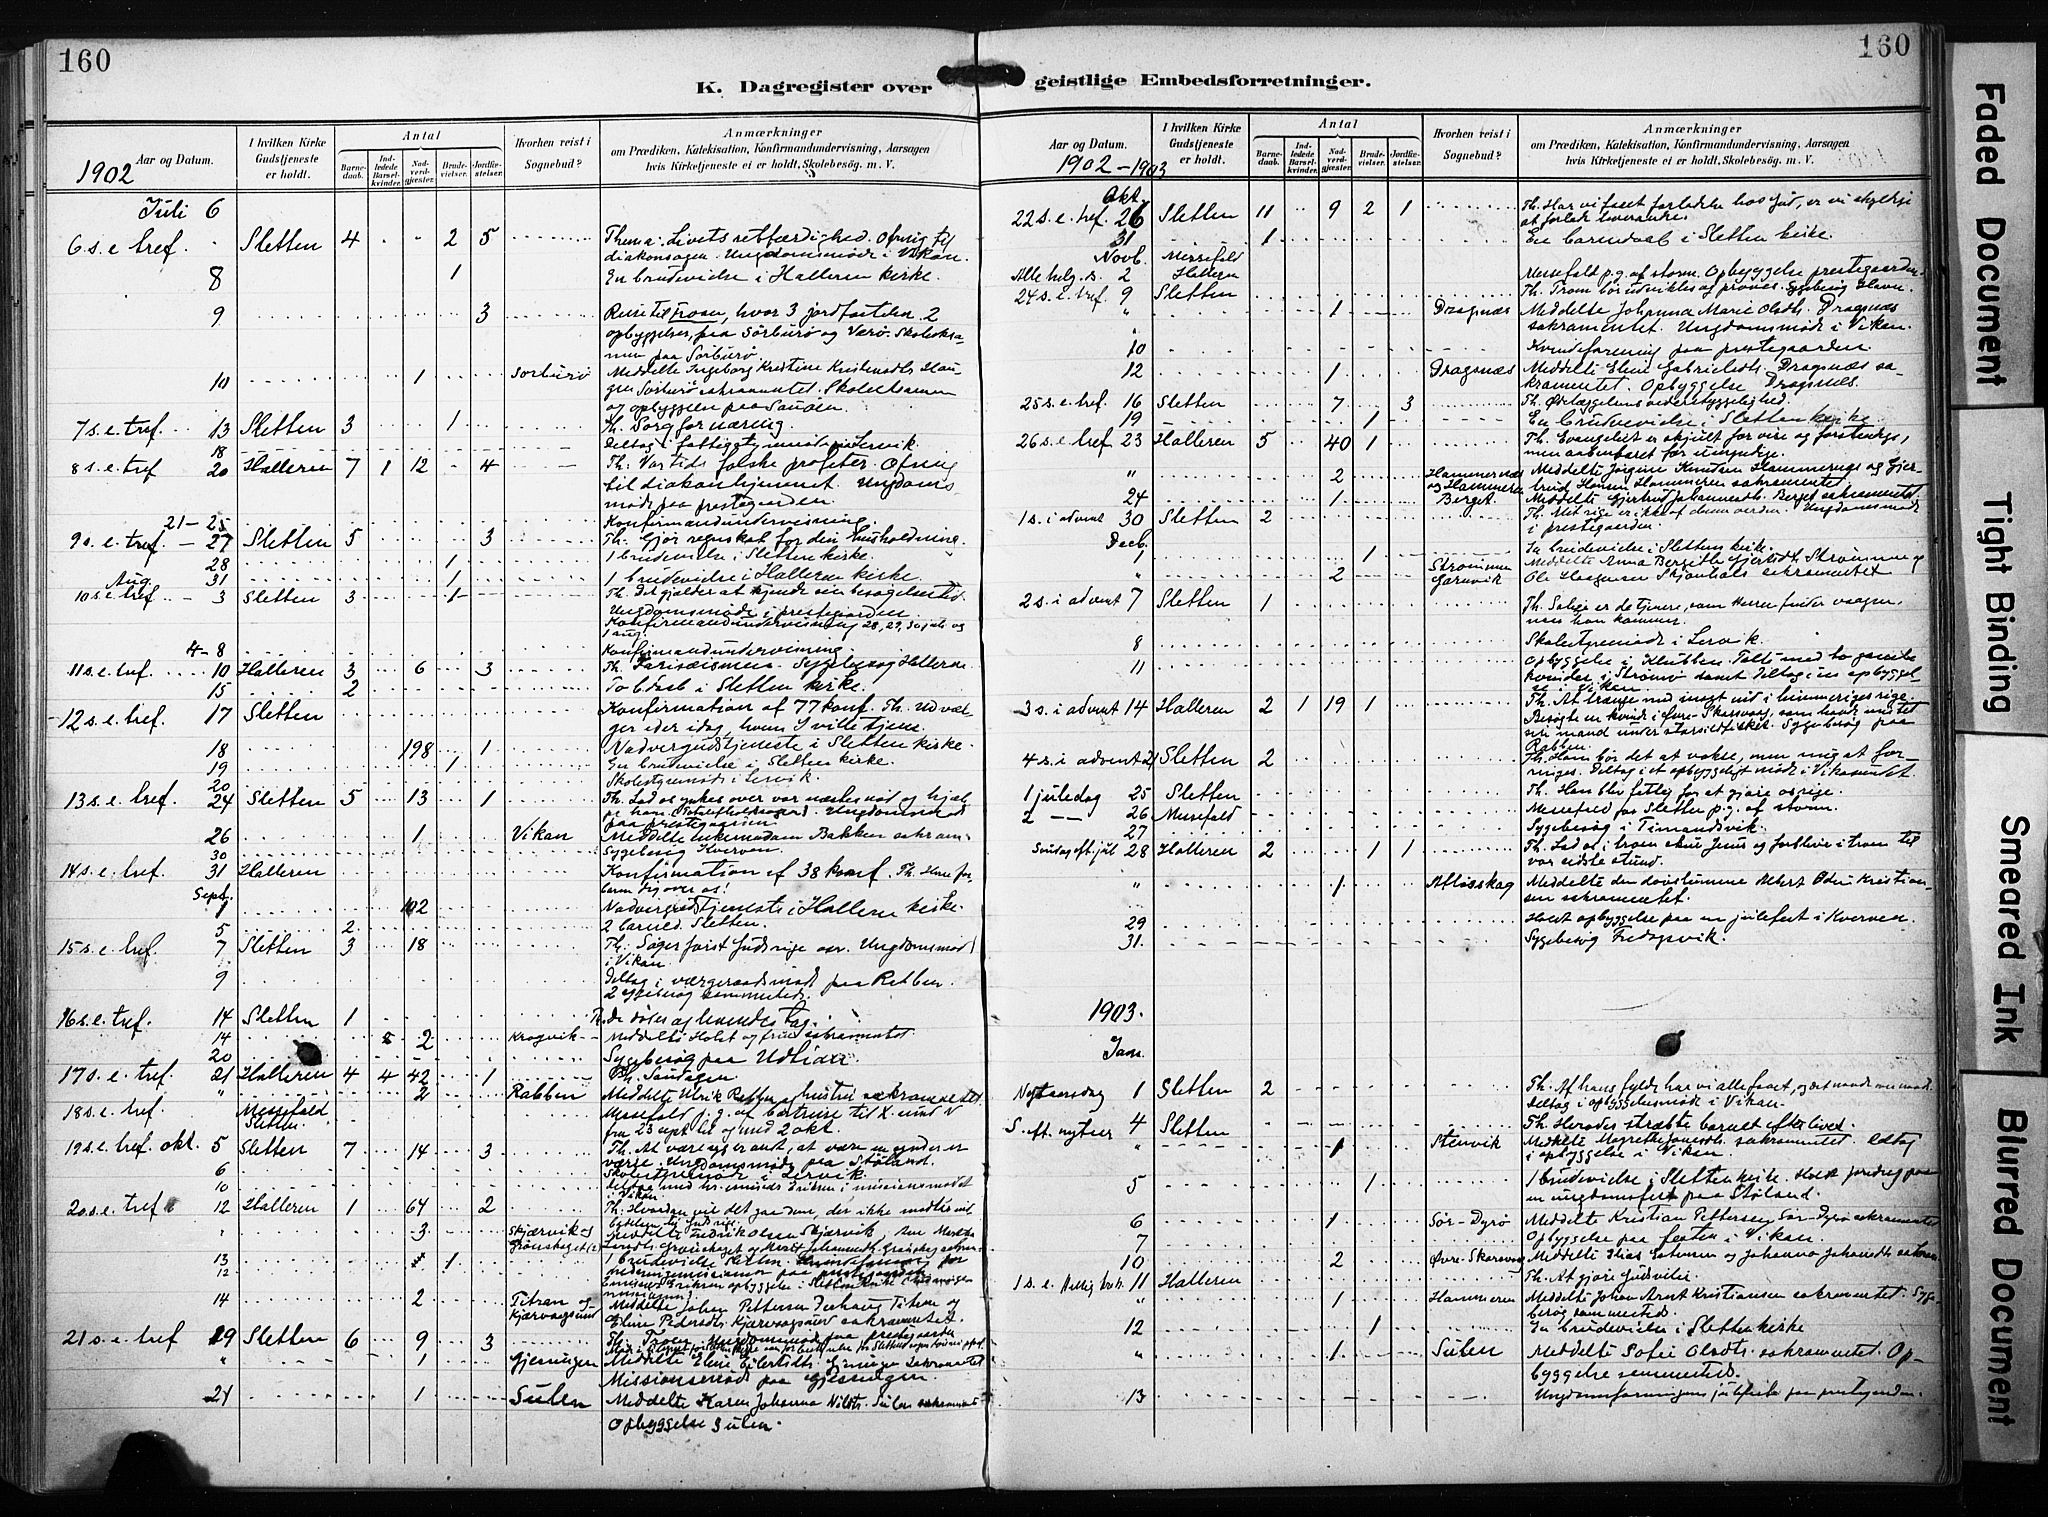 160
K. Dagregister over
Aar og Datum.
1902
I hvilken Kirke Gudstjeneste er holdt.
Antal
Barnedaab.
Indledede Barselkvinder.
Nadverdgjester.
Brudevielser.
Jordfæstelser.
Hvorhen reist i Sognebud?
Anmærkninger
om Prædiken, Katekisation, Konfirmandundervisning, Aarsagen
hvis Kirketjeneste ei er holdt, Skolebesøg. m. V.
Juli 6
6 s. e. tref. Sletten 4 2 5 Thema: Livets retfærdighed. Ofring til
diakonsagen. Ungdomsmøde i Vikan.
8 1 En brudevielse i Halleren kirke.
9 3 hvor 3 jordfæstelser. 2
opbyggelser, paa Sørburø og Værø. Skoleeksa-
men paa Sørburø.
10 1 Sørburø Meddelte Ingeborg Kristine
Sørburø sakramentet. Skoleeksamen
og opbyggelse paa
7 s. e. tref. 13 Sletten 3 1 Th. Sorg for næring.
18 Deltog i
8 s. e. tref 20 Halleren 7 1 12 4 Th: Vor tids falske profeter. Ofring
til diakonhjemmet. Ungdoms-
møde paa prestegaarden.
21-25 Konfirmandundervisning
9 s. e. tref. 27 Sletten 5 3 Th. Gjør regnskab for din husholdning.
28 1 1 brudevielse i Sletten kirke.
31 1 1 brudevielse i Halleren kirke.
Aug.
10 s. e. tref 3 Sletten 3 1 Th. Det gjælder at kjende sin besøgelsestid.
Ungdomsmøde i prestegaarden.
Konfirmandundervisning 28, 29, 30 juli og
1 aug.
4-8 Konfirmandundervisning.
11 s. e. tref. 10 Halleren 3 6 3 Th. Farisæismen. Sygebesøg Halleren
15 2 To bdaab i Sletten kirke.
12 s. e. tref. 17 Sletten Konfirmation af 77 konf. Th. Udvæl-
ger eder idag, hvem I ville tjene.
18 198 1 Nadvergudstjeneste i Sletten kirke.
19 1 En brudevielse i Sletten kirke.
20 Skolestyremøde i Lervik.
13 s. e. tref. 24 Sletten 5 13 1 Th. Lad os ynkes over vor næstes nød og hjæl-
pe ham. Ungdomsmøde
paa prestegaarden
26 1 Vikan Meddelte enkemadam Bakken sakram.
30 Sygebesøg Kverven.
14 s. e. tref. 31 Halleren Konfirmation af 38 konf. Th. Herre for-
barm dig over os!
Septb.
1 102 Nadvergudstjeneste i Halleren kirke.
5 2 2 barned. Sletten.
15 s. e. tref. 7 Sletten 3 18 Th: Søger først Guds rige osv. Ungdomsmøde
i Vikan
9 Deltog i værgeraadsmøde paa Rabben.
2 sygebesøg sammesteds.
16 s. e. tref. 14 Sletten 1 Th. De døde og levendes tog.
14 2 Krogvik Meddelte Holst og frue sakramentet
20 Sygebesøg paa Udtian
17 s. e. tref. 21 Halleren 4 4 42 1 Th. Søndagen.
" 2 Rabben Meddelte Ulrik Rabben og hustru sakramentet
18 s. e. tref. Messefald Sletten. Messefald p. g. af
fra 23 sept til og med 2 okt.
19 s. e. tref. okt. 5 Sletten 7 14 3 Th. At være
Ungdomsmøde paa Støland.
6 Skolestyremøde i Lervik.
10 i missionsmødet
i Vikan
20 s. e. tref 12 Halleren 1 64 2 Th: Hvordan vil det gaa dem, der ikke modtar
" 3 Skjærvik og Meddelte Fredrik Olsen Skjærvik,
13 1 1 brudevielse Sletten.
12
14 2 Titran og Kjærvaagsund Meddelte Johan Pettersen Titran og
Eline Pedersdt. Kjærvaagsund sakramentet.
21 s. e. tref 19 Sletten 6 9 3 Th. Troen. Ungdomsmøde paa prestegaarden
" 1 Gjesingen Meddelte Eline Eilertsdt. Gjesingen sakramentet
Missionsmøde paa Gjesingen.
21 1 Sulen Meddelte Karen Johanna Nilsdt. Sulen sakrament.
Opbyggelse Sulen.
160
geistlige Embedsforretninger.
Aar og Datum.
1902-1903
I hvilken Kirke Gudstjeneste er holdt.
Antal
Barnedaab.
Indledede Barselkvinder.
Nadverdgjester.
Brudevielser.
Jordfæstelser.
Hvorhen reist i Sognebud?
Anmærkninger
om Prædiken, Katekisation, Konfirmandundervisning, Aarsagen
hvis Kirketjeneste ei er holdt, Skolebesøg. m. V.
Okt.
22 s. e. tref. 26 Sletten 11 9 2 1 Th. Har vi faaet forladelse hos Gud, er vi skyldige
at forlade hverandre.
31 1 En barnedaab i Sletten kirke.
Novb. Messefald
Alle helg. s. 2 Halleren Messefald p. g. af storm. Opbyggelse prestegaarden.
24 s. e. tref. 9 Sletten Th. Troen bør udvikles og prøves. Sygebesøg Havn.
" 1 Dragsnæs Meddelte Johanna Marie Olsdt. Dragsnæs
sakramentet. Ungdomsmøde i Vikan.
10 Kvindeforening paa prestegaarden.
12 1 Dragsnæs Meddelte Eline Gabrielsdt. Dragsnæs sa-
kramentet. Opbyggelse Dragsnæs.
25 s. e. tref. 16 Sletten 7 3 Th. Ødelæggelsens vederstyggelighed.
19 1 En brudevielse i Sletten kirke
26 s. e. tref 23 Halleren 5 40 1 Th. Evangeliet er skjult for vise og forstandige,
men aabenbaret for umyndige.
" 2 Hammernæs og Hammeren Meddelte Jørgine Knutsen Hammernæs og Gjer-
trud Hansen Hammeren sakramentet.
24 1 Berget. Meddelte Gjertrud Johannesdt. Berget sakramentet.
1 s. i advent 30 Sletten 2 Th. Mit rige er ikke af denne verden. Ungdomsmøde
i prestegaarden.
Decb.
1 1 En brudevielse i Sletten kirke.
" 2 Strømmen Garnvik Meddelte Anna Bergitte Gjertsdt. Strømmen og
Ole sakramentet
2 s. i advent 7 Sletten 1 Th. Salige er de tjenere, som Herren finder vaagen-
naar han kommer.
8 Skolestyremøde i Lervik.
11 Opbyggelse i Klubben. Talte med to gamle
kvinder i Strømø samt deltog i en opbyggel-
se i Vikan
3 s. i advent 14 Halleren 2 1 19 1 Th. At trænge med magt ind i himmeriges rige.
Besøgte en kvinde i Øvre-Skarsvaag, som havde mistet
sin mand under storsildfisket. Sygebesøg paa
Rabben.
4 s. i advent 21 Sletten 2 Th. Ham bør det at vokse, men mig at for-
ringes. Deltog i et opbyggeligt møde i Vikan
1 juledag 25 Sletten Th. Han blev fattig for at gjøre os rige.
2 - - 26 Messefald Messefald for Sletten p. g. af storm.
27 Sygebesøg i Timandsvik.
Søndag eft. jul 28 Halleren 2 1 1 Th. Lad os i troen skue Jesus og forblive i troen til
vor sidste stund.
" 1 Afløsskag Meddelte den døvstumme Albert Odin Kristian-
sen sakramentet.
29 Holdt opbyggelse paa en julefest i Kverven.
31. Sygebesøg Fredagsvik.
1903.
Jan.
Nytaarsdag 1 Sletten 2 Th. Af hans fylde har vi alle faaet, og det naade over naade.
Deltog i opbyggelsesmøde i Vikan.
S. eft. nytaar 4 Sletten Th. Herodes stræbte barnet efter livet.
" 1 Stenvik Meddelte Magrethe Jonesdt. sakramentet. Deltog
i opbyggelse i Vikan.
5 1 1 brudevielse i Sletten kirke. Holdt foredrag paa
en ungdomsfest paa Støland.
6 1 Sør-Dyrø Meddelte Kristian Pettersen Sør-Dyrø sakramentet
7 Opbyggelse paa festen i Vikan.
10 2 Øvre-Skarsvaag Meddelte Elias og Johanna Johansdt. sakram.
1 s. e. Hellig 3 k. 11 Halleren Th. At gjøre Guds vilje.
" 1 Hammeren Meddelte Johan Arnt Kristiansen sakramentet. Syge-
besøg sammesteds.
12 1 En brudevielse i Sletten kirke
" 1 Sulen Meddelte Sofie Olsdt. sakramentet. Op-
byggelse sammesteds.
13 Ungdomsforeningens julefest paa prestegaarden.
Faded Document
Tight Binding
Smeared Ink
Blurred Document